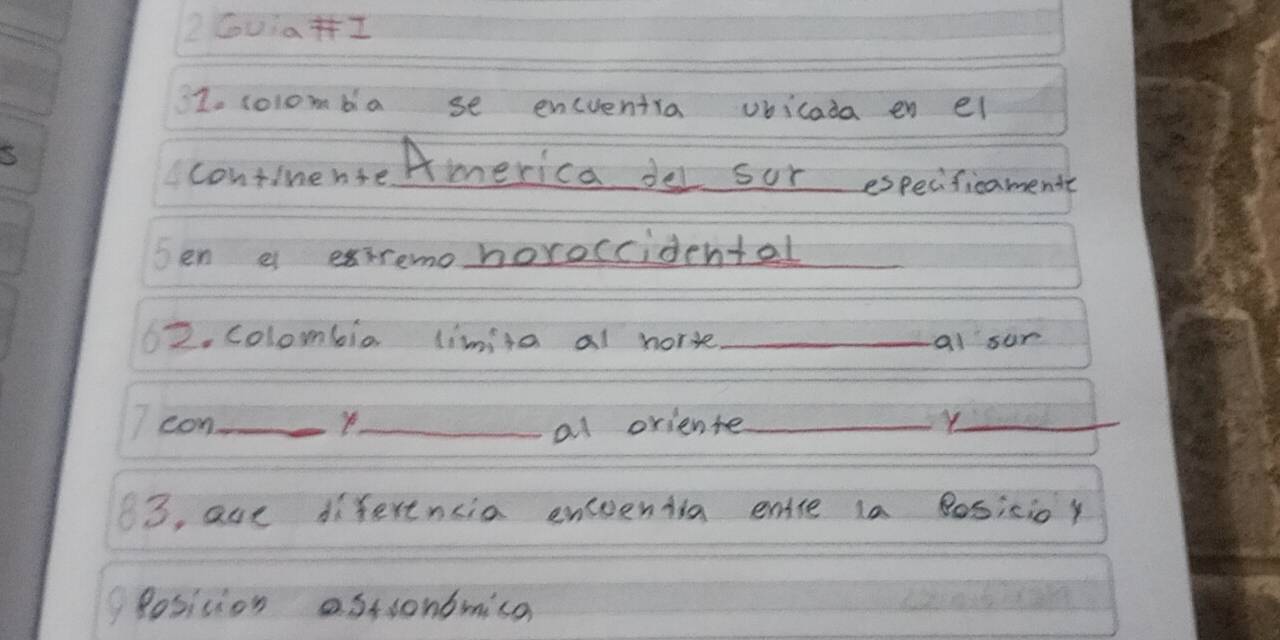 2 Guia #I
31. colombia se encuentra ubicada en el
4 continente America del sur especificamente
5 en el extremo noroccidental
6 2. colombia limita al norte ________ al sur
7 con _____ y ________ al oriente ________ y ________
8 3. que diferencia encuentra entre la Posicio y
9 Posicion astronómica
s